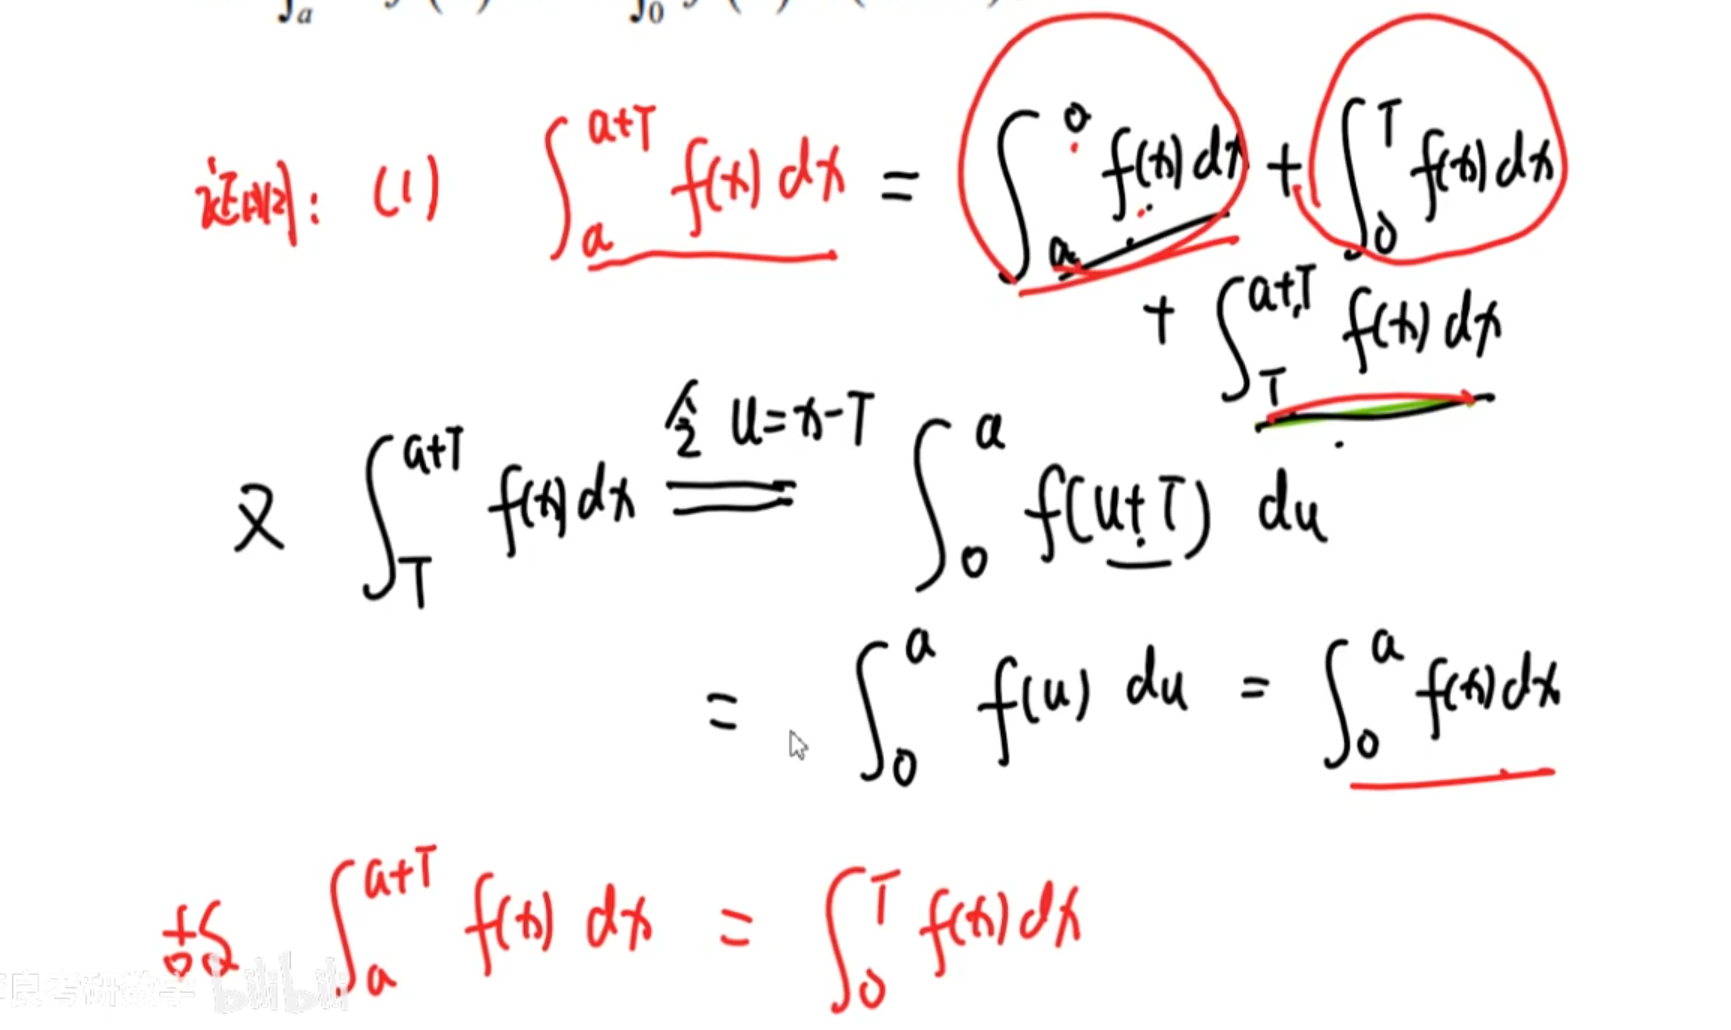 证明: (1) ∫_a^{a+T} f(x) dx = ∫_a^0 f(x) dx + ∫_0^T f(x) dx
+ ∫_T^{a+T} f(x) dx
又 ∫_T^{a+T} f(x) dx 令 u=x-T = ∫_0^a f(u+T) du
= ∫_0^a f(u) du = ∫_0^a f(x) dx
故 ∫_a^{a+T} f(x) dx = ∫_0^T f(x) dx
良考研数学 bilibili